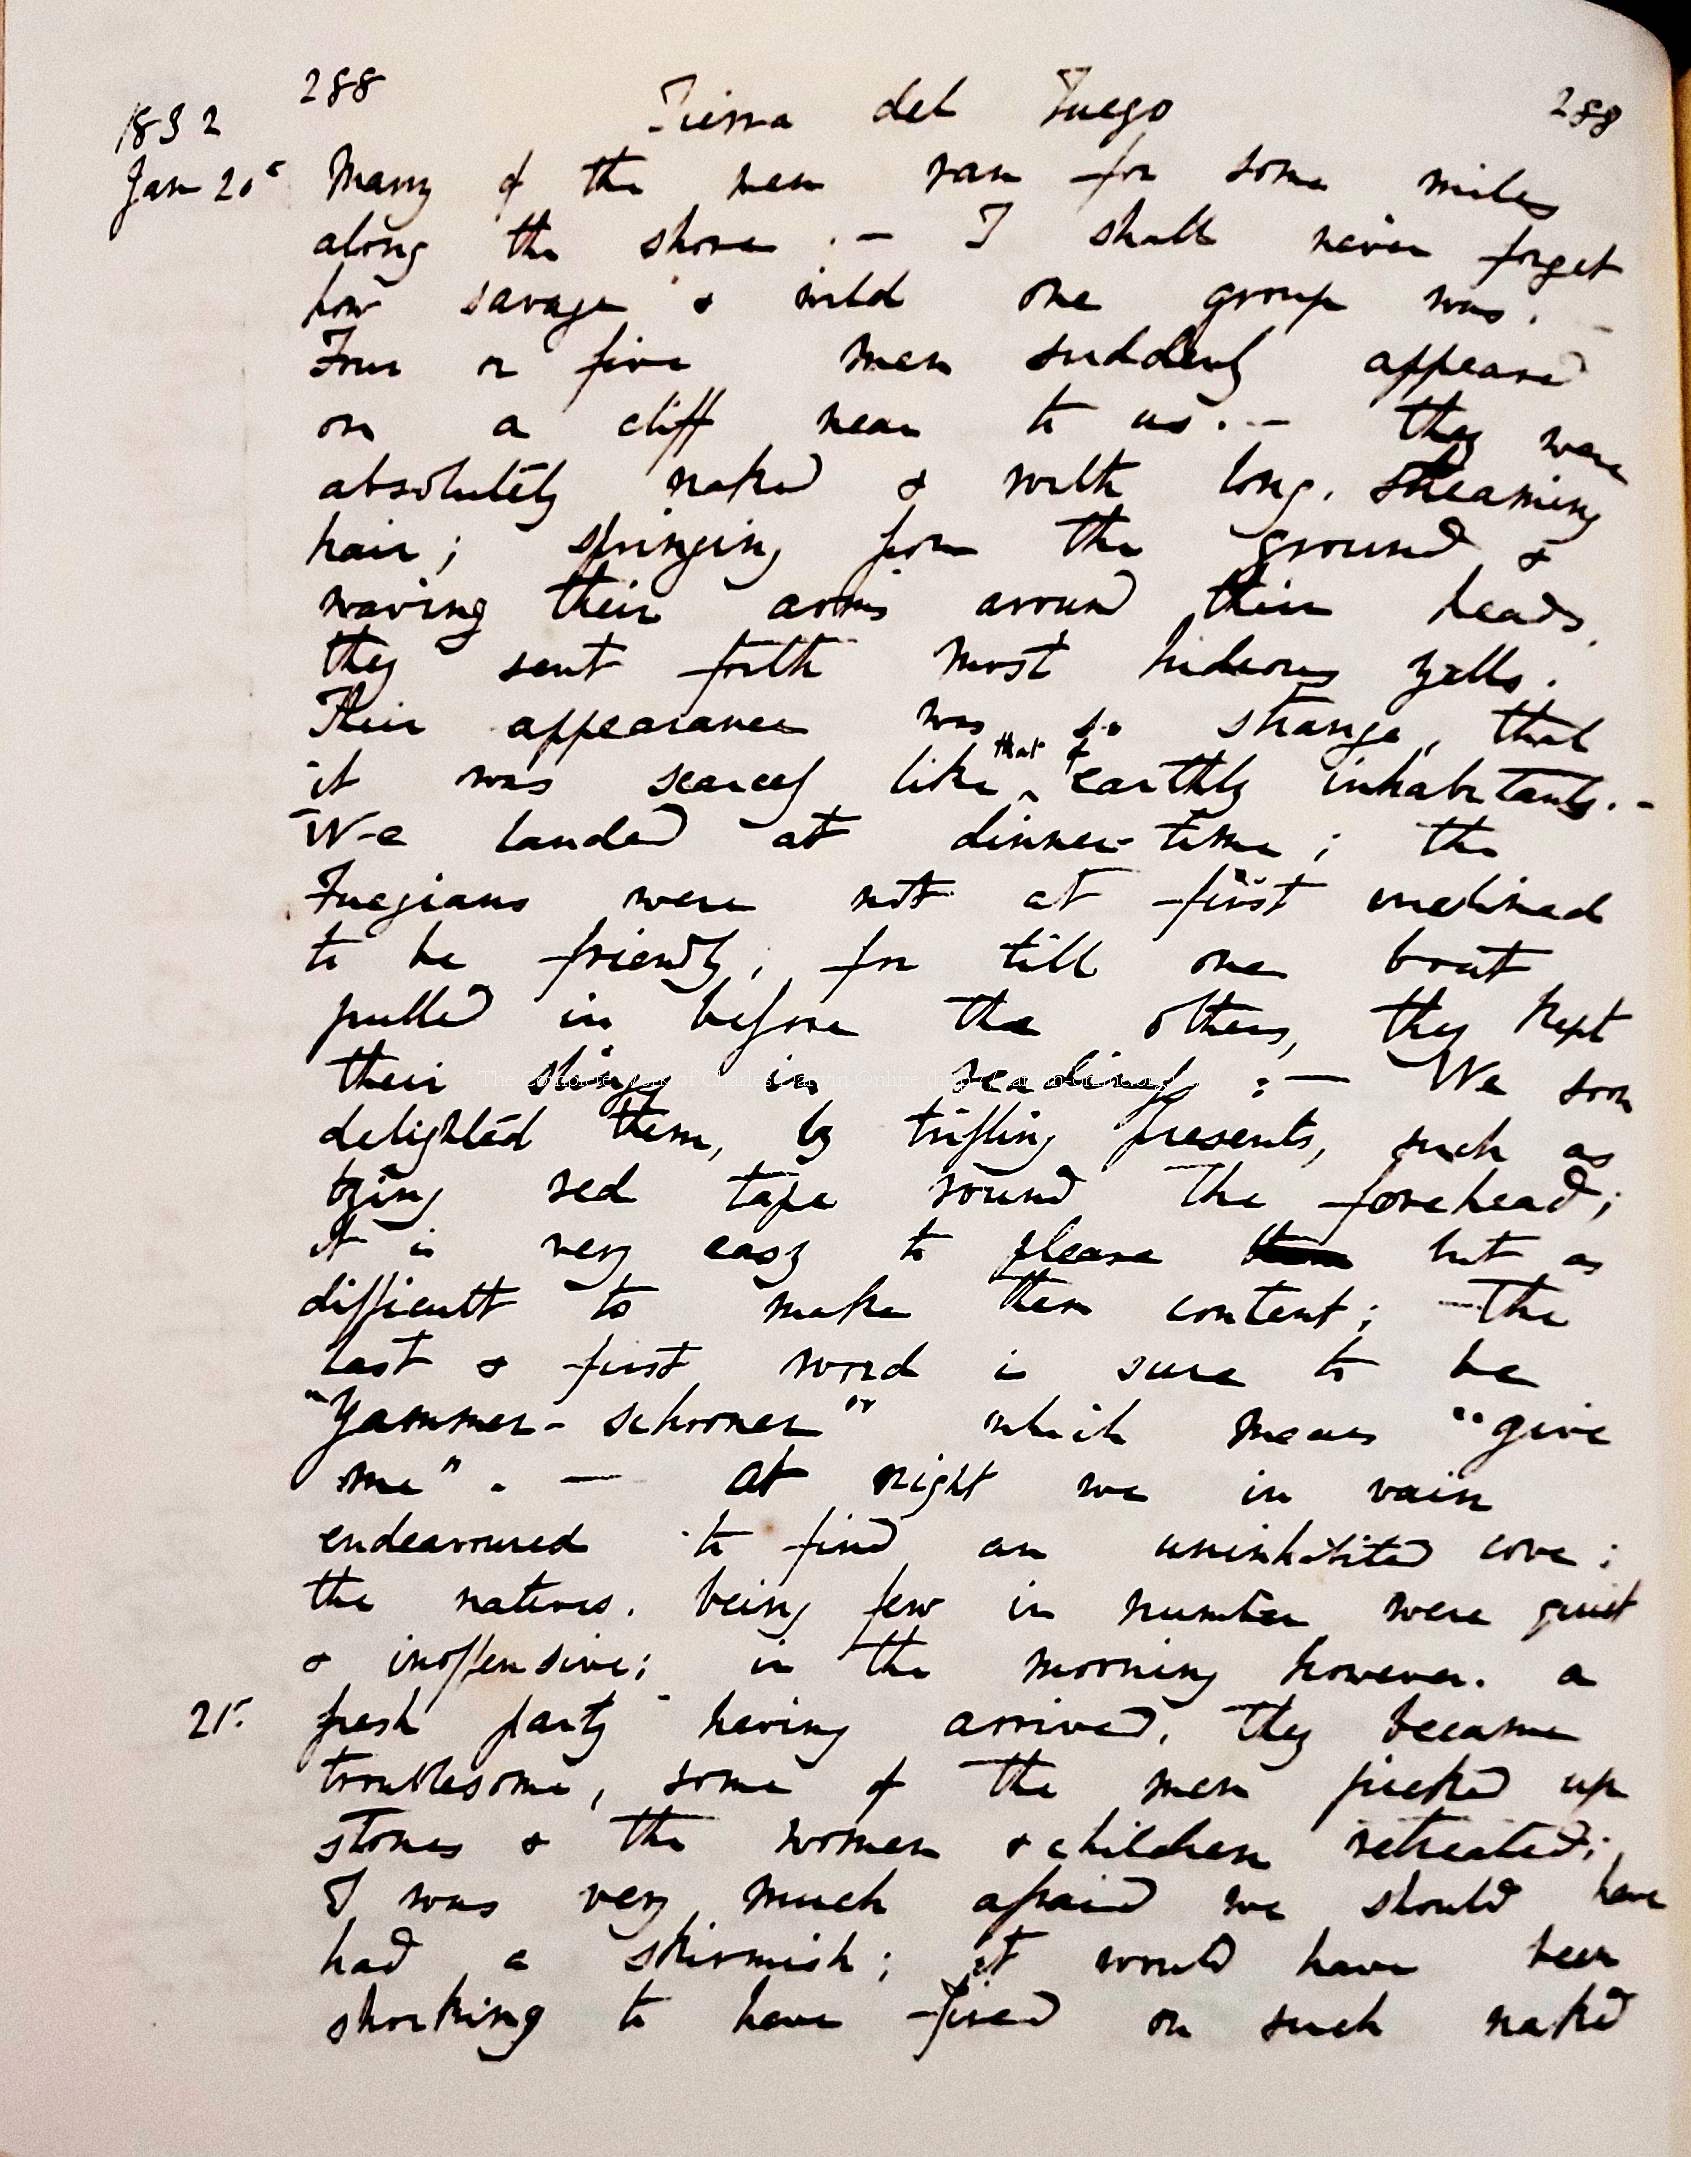 288 Tierra del Fuego 288
1832
Jan 20th Many of the men ran for some miles
along the shore .— I shall never forget
how savage & wild one group was. —
Four or five men suddenly appeared
on a cliff near to us. — they were
absolutely naked & with long, streaming
hair; springing from the ground &
waving their arms around their heads,
they sent forth most hideous yells.
Their appearance was so strange, that
it was scarcely like that of earthly inhabitants. —
We landed at dinner-time; the
Fuegians were not at first inclined
to be friendly, for till one boat
pulled in before the others, they kept
their slings in readiness: — We soon
delighted them, by trifling presents, such as
tying red tape round the forehead;
it is very easy to please but as
difficult to make them content; the
last & first word is sure to be
"Yammer-schooner" which means "give
me". — At night we in vain
endeavoured to find an uninhabited cove;
the natives, being few in number were quiet
& inoffensive; in the morning however, a
21st fresh party having arrived, they became
troublesome, some of the men picked up
stones & the women & children retreated;
I was very much afraid we should have
had a skirmish; it would have been
shocking to have fired on such naked